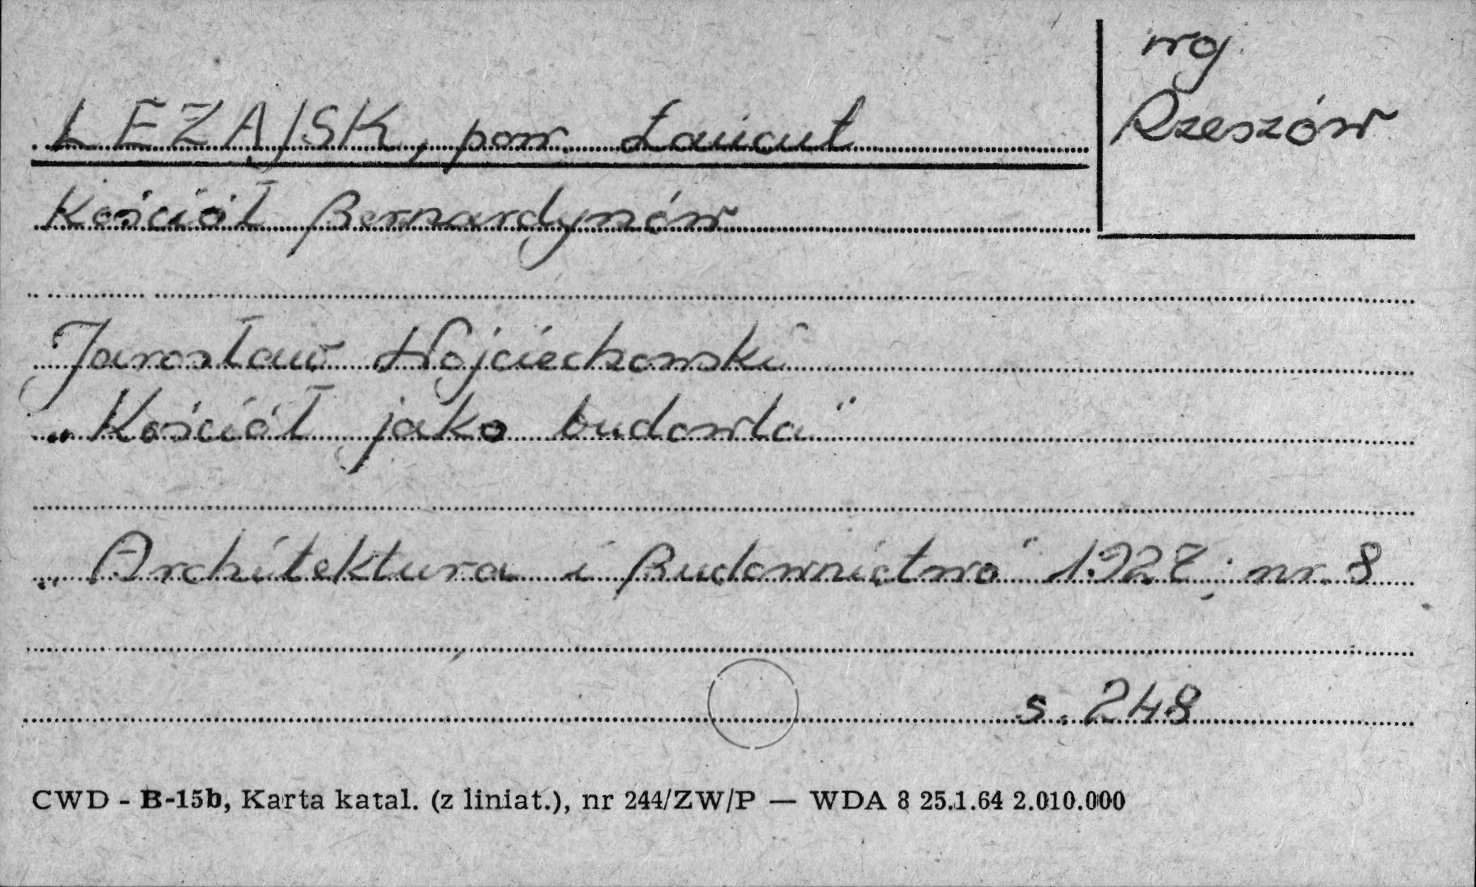 woj.
Rzeszów
LEŻAJSK, pow. Łańcut
Kościół Bernardynów
Jarosław Wojciechowski
„Kościół jako budowla"
„Architektura i Budownictwo" 1927; nr. 8
s. 248
CWD - B-15b, Karta katal. (z liniat.), nr 244/ZW/P — WDA 8 25.1.64 2.010.000